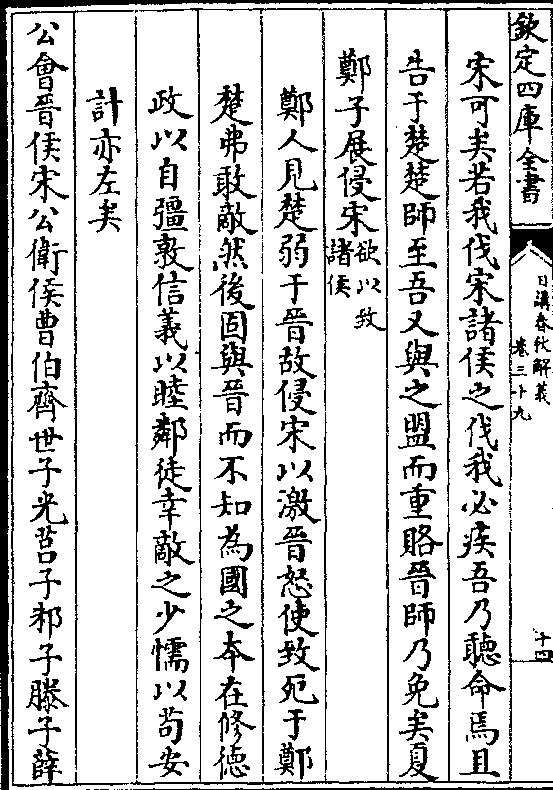 欽定四庫全書
日講春秋解義
卷三十九
十四
宋可矣若我伐宋諸侯之伐我必疾吾乃聽命焉且
告于楚楚師至吾又與之盟而重賂晉師乃免矣夏
鄭子展侵宋欲以致
諸侯
鄭人見楚弱于晉故侵宋以激晉怒使致死于鄭
楚弗敢敵然後固與晉而不知為國之本在修德
政以自彊敦信義以睦鄰徒幸敵之少懦以苟安
計亦左矣
公會晉侯宋公衛侯曹伯齊世子光莒子邾子滕子薛